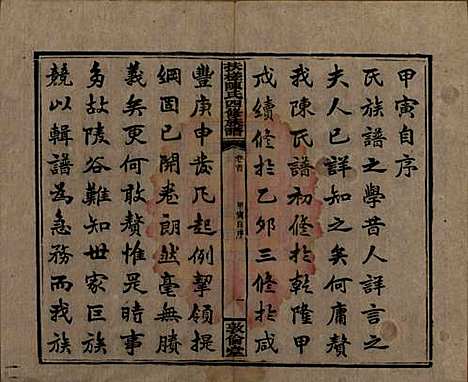 甲寅自序
氏族譜之學昔人詳言之
夫人已詳知之矣何庸贅
我陳氏譜初修於乾隆甲
戍續修於乙夘三修於咸
扶槎陳氏四修族譜
卷首
甲寅自序
一
敦倫堂
豐庚申發凡起例挈領提
綱固已開卷朗然毫無賸
義矣更何敢贅惟是時事
多故陵谷難知世家巨族
競以輯譜為急務而我族